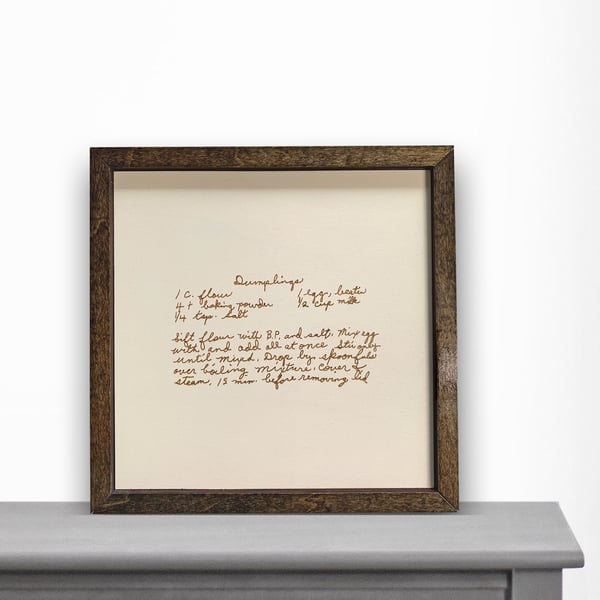 Dumplings
1 c. flour 1 egg, beaten
4 t baking powder 1/2 cup milk
1/4 tsp. salt
Sift flour with B.P. and salt. Mix egg
with and add all at once Stir only
until mixed. Drop by spoonfuls
over boiling mixture. Cover &
steam. 15 min. before removing lid